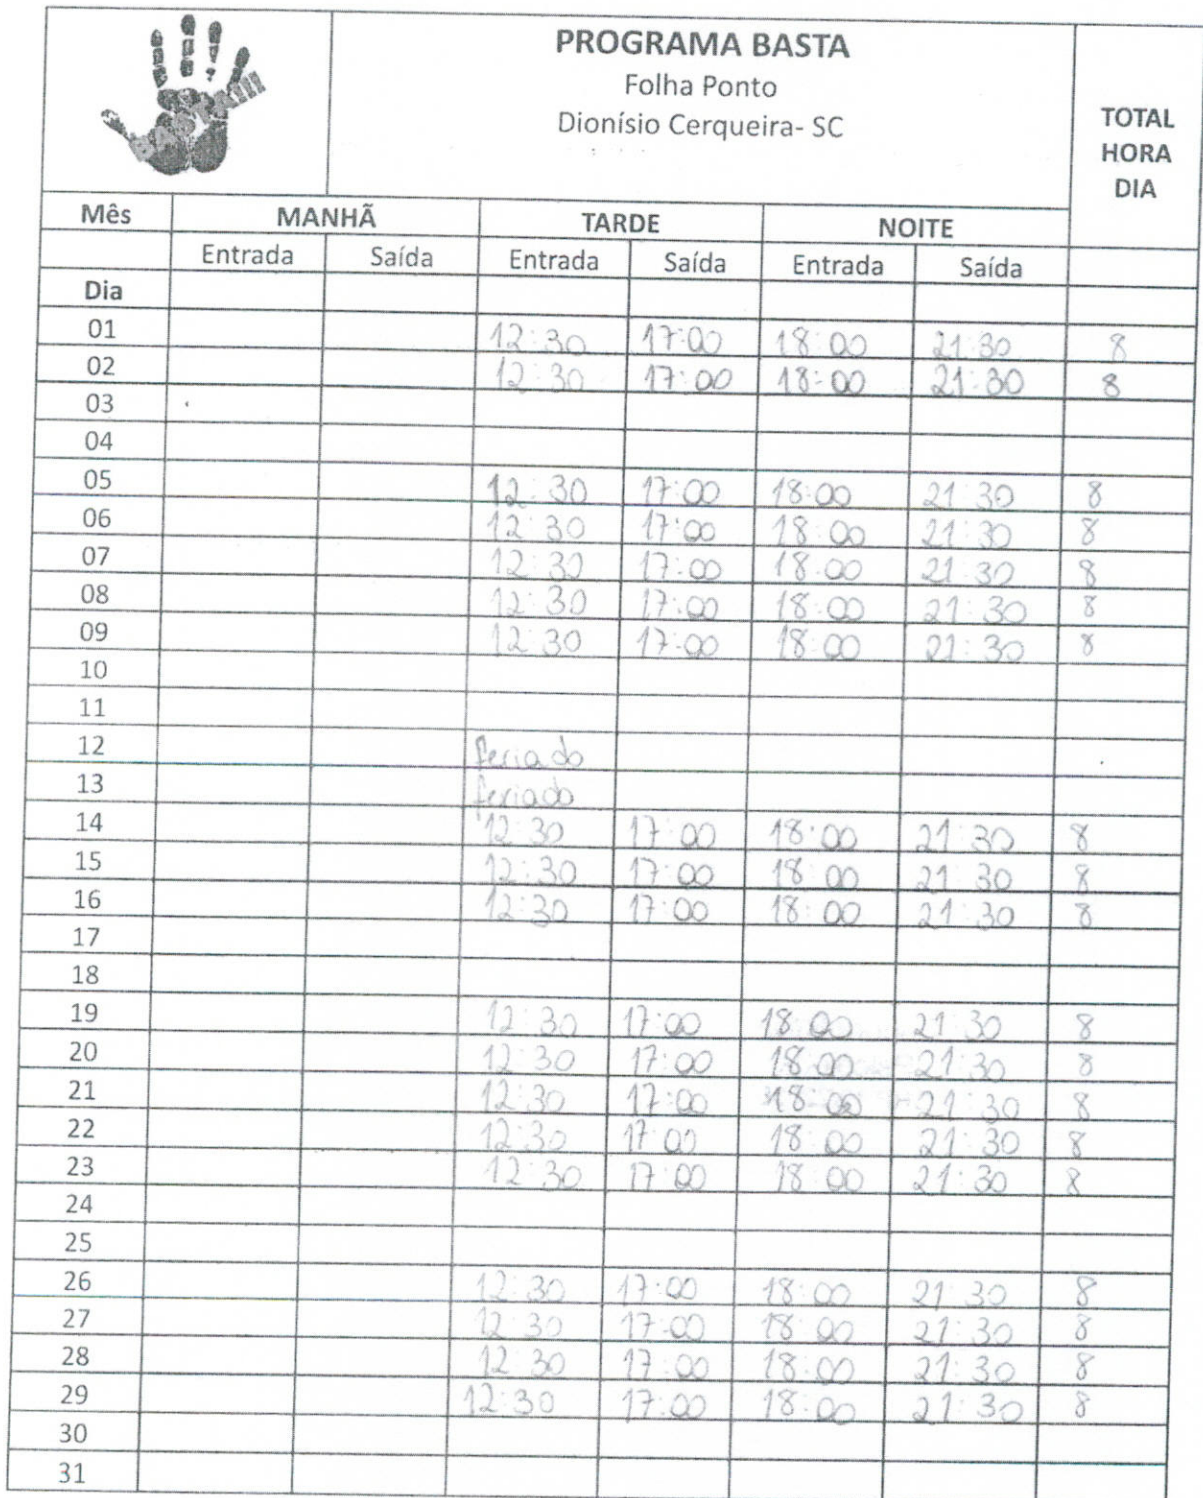 BASTA!!!
PROGRAMA BASTA
Folha Ponto
Dionísio Cerqueira- SC
TOTAL
HORA
DIA
Mês MANHÃ TARDE NOITE
Entrada Saída Entrada Saída Entrada Saída
Dia
01 12:30 17:00 18:00 21:30 8
02 12:30 17:00 18:00 21:30 8
03
04
05 12:30 17:00 18:00 21:30 8
06 12:30 17:00 18:00 21:30 8
07 12:30 17:00 18:00 21:30 8
08 12:30 17:00 18:00 21:30 8
09 12:30 17:00 18:00 21:30 8
10
11
12 feriado
13 feriado
14 12:30 17:00 18:00 21:30 8
15 12:30 17:00 18:00 21:30 8
16 12:30 17:00 18:00 21:30 8
17
18
19 12:30 17:00 18:00 21:30 8
20 12:30 17:00 18:00 21:30 8
21 12:30 17:00 18:00 21:30 8
22 12:30 17:00 18:00 21:30 8
23 12:30 17:00 18:00 21:30 8
24
25
26 12:30 17:00 18:00 21:30 8
27 12:30 17:00 18:00 21:30 8
28 12:30 17:00 18:00 21:30 8
29 12:30 17:00 18:00 21:30 8
30
31